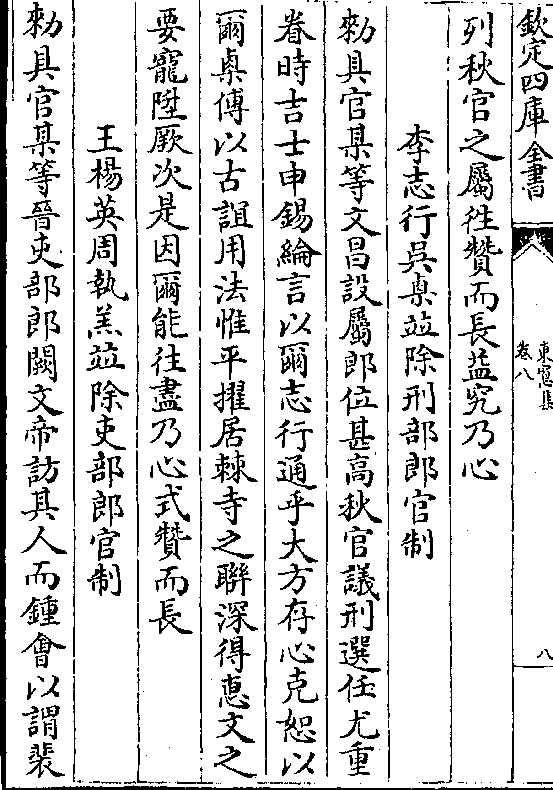 欽定四庫全書
東窻集
卷八
八
列秋官之屬徃贊而長益究乃心
李志行吳㮚並除刑部郎官制
勑具官某等文昌設屬郎位甚高秋官議刑選任尤重
眷時吉士申錫綸言以爾志行通乎大方存心克恕以
爾㮚傅以古誼用法惟平擢居棘寺之聯深得惪文之
要寵陞厥次是因爾能往盡乃心式贊而長
王楊英周執羔並除吏部郎官制
勑具官某等晉吏部郎闕文帝訪其人而鍾會以謂裴